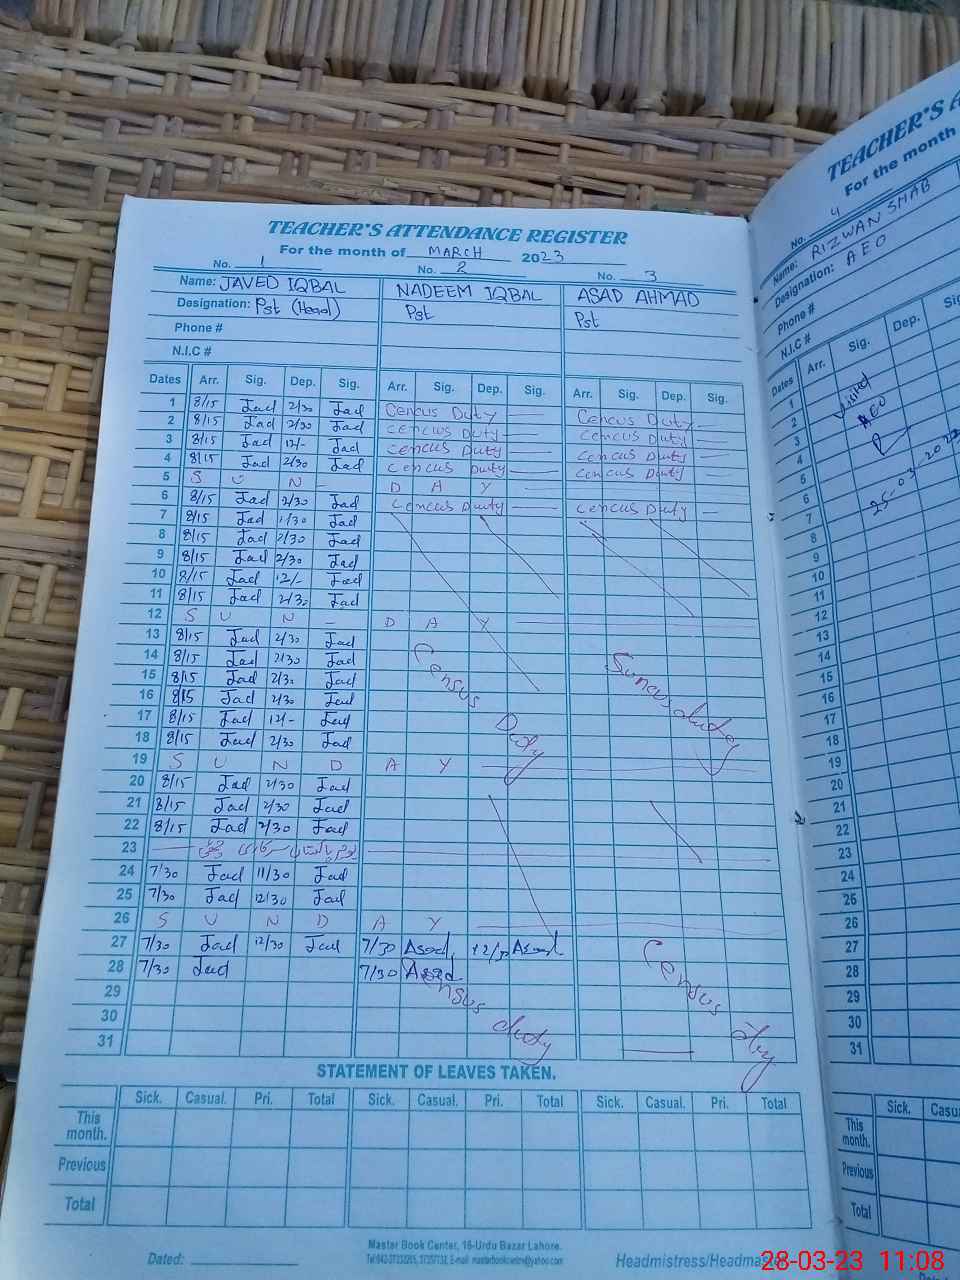 TEACHER'S ATTENDANCE REGISTER
For the month of MARCH 2023
No. 1 No. 2 No. 3
Name: JAVED IQBAL NADEEM IQBAL ASAD AHMAD
Designation: Pst (Head) Pst Pst
Phone #
N.I.C #
Dates Arr. Sig. Dep. Sig. Arr. Sig. Dep. Sig. Arr. Sig. Dep. Sig.
1 8/15 Jad 2/30 Jad Cencus Duty
2 8/15 Jad 2/30 Jad cencus Duty Cencus Duty
3 8/15 Jad 12/- Jad Cencus Duty Cencus Duty
4 8/15 Jad 2/30 Jad cencus Duty Cencus Duty
5 S U N - D A Y Cencus Duty
6 8/15 Jad 2/30 Jad Cencus Duty Cencus Duty
7 8/15 Jad 1/30 Jad
8 8/15 Jad 2/30 Jad
9 8/15 Jad 2/30 Jad
10 8/15 Jad 12/- Jad
11 8/15 Jad 2/30 Jad
12 S U N - D A Y
13 8/15 Jad 2/30 Jad
14 8/15 Jad 2/30 Jad Census Duty
15 8/15 Jad 2/30 Jad
16 8/15 Jad 2/30 Jad
17 8/15 Jad 12/- Jad
18 8/15 Jad 2/30 Jad
19 S U N D A Y
20 8/15 Jad 2/30 Jad
21 8/15 Jad 2/30 Jad
22 8/15 Jad 2/30 Jad
23 یوم پاکستان سرکاری چھٹی
24 7/30 Jad 11/30 Jad
25 7/30 Jad 12/30 Jad
26 S U N D A Y
27 7/30 Jad 12/30 Jad 7/30 Asad 12/30 Asad
28 7/30 Jad 7/30 Asad Census
29 Census duty
30
31
STATEMENT OF LEAVES TAKEN.
Sick. Casual. Pri. Total Sick. Casual. Pri. Total Sick. Casual. Pri. Total
This month.
Previous
Total
Master Book Center, 16-Urdu Bazar Lahore.
Dated: Headmistress/Headmaster
TEACHER'S A
For the month
No. 4
Name: RIZWAN SHAB
Designation: AEO
Phone #
N.I.C #
Dates Arr. Sig. Dep. Sig
1
2 Visited
3 AEO
4
5
6
7 25-03-2023
8
9
10
11
12
13
14
15
16
17
18
19
20
21
22
23
24
25
26
27
28
29
30
31
Sick. Casu
This month.
Previous
Total
28-03-23 11:08